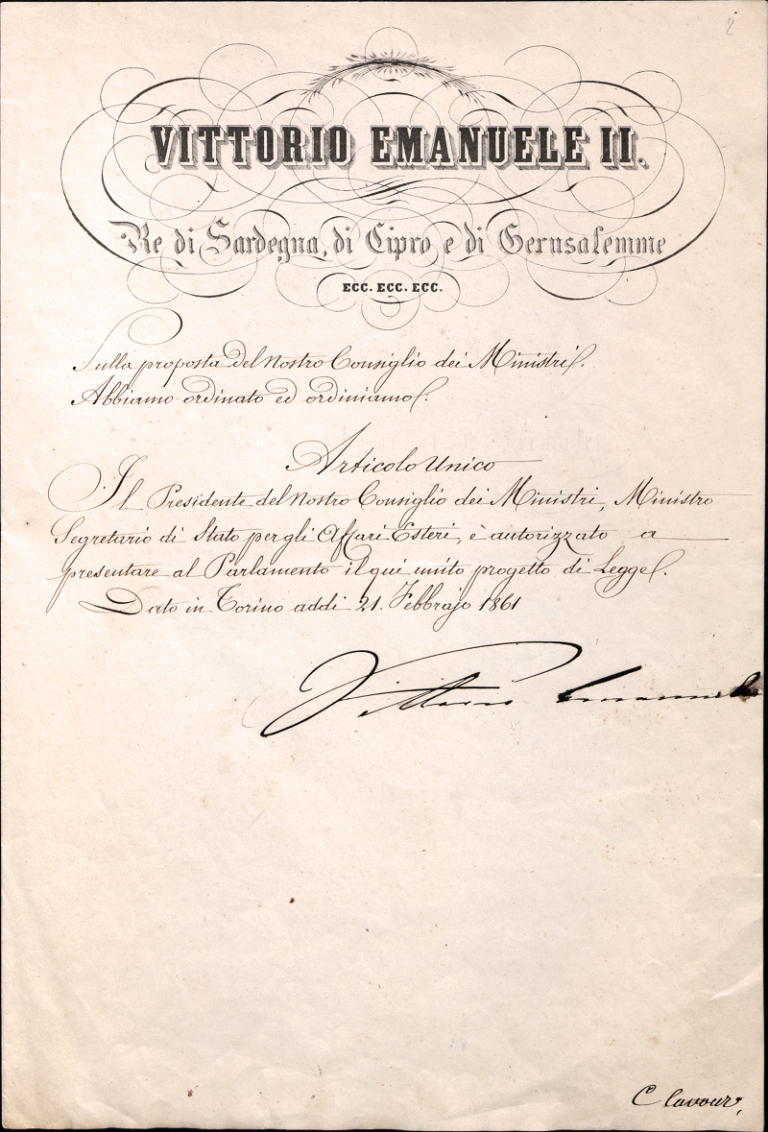 2
VITTORIO EMANUELE II.
Re di Sardegna, di Cipro e di Gerusalemme
ECC. ECC. ECC.
Sulla proposta del Nostro Consiglio dei Ministri.
Abbiamo ordinato ed ordiniamo.
Articolo Unico
Il Presidente del Nostro Consiglio dei Ministri, Ministro
Segretario di Stato per gli Affari Esteri, è autorizzato a
presentare al Parlamento il qui unito progetto di Legge.
Dato in Torino addi 21. Febbrajo 1861
Vittorio Emanuele
C Cavour